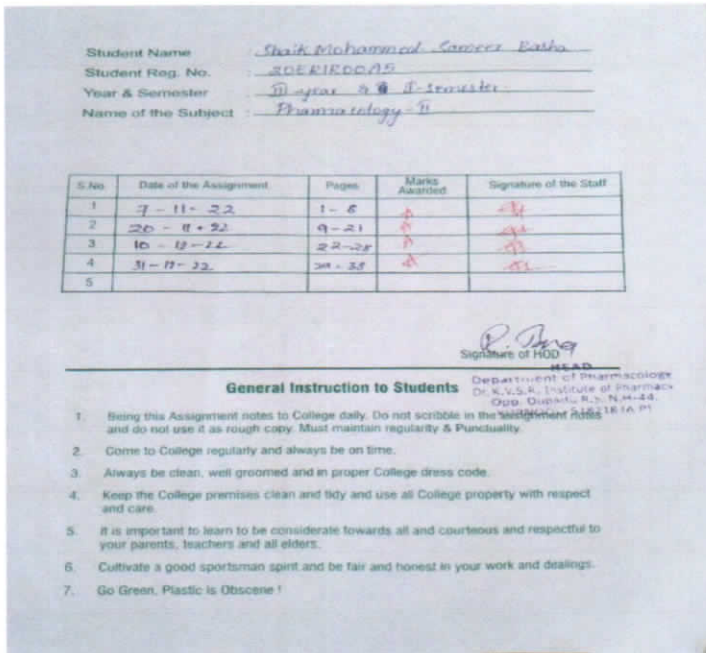 Student Name : Shaik Mohammed Sameer Basha
Student Reg. No. : 20EK1R00A5
Year & Semester : III year & I-Semester.
Name of the Subject : Pharmacology-II
S.No. Date of the Assignment Pages Marks Awarded Signature of the Staff
1 7-11-22 1-8
2 20-11-22 9-21
3 10-12-22 22-28
4 31-12-22 29-38
5
Signature of HOD
HEAD
Department of Pharmacology
Dr. K.V.S.R. Institute of Pharmacy
Opp. Dupadu R.S. N.H-44,
General Instruction to Students
1. Being this Assignment notes to College daily. Do not scribble in the assignment notes
and do not use it as rough copy. Must maintain regularity & Punctuality.
2. Come to College regularly and always be on time.
3. Always be clean, well groomed and in proper College dress code.
4. Keep the College premises clean and tidy and use all College property with respect
and care.
5. It is important to learn to be considerate towards all and courteous and respectful to
your parents, teachers and all elders.
6. Cultivate a good sportsman spirit and be fair and honest in your work and dealings.
7. Go Green, Plastic is Obscene !